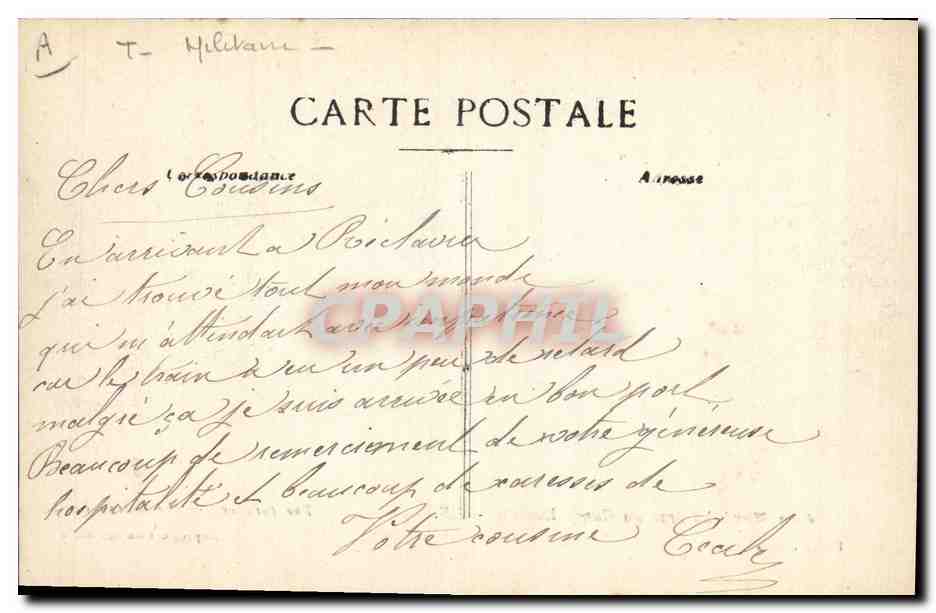 A
T - Militaire -
CARTE POSTALE
Correspondance
Adresse
Chers Cousins
En arrivant a
j'ai trouvé tout mon monde
qui m'attendait avec impatience
car le train a eu un peu de retard
malgré ça je suis arrivée en bon port
Beaucoup de remerciement de votre généreuse
hospitalité et beaucoup de caresses de
Votre cousine
CPAPHIL